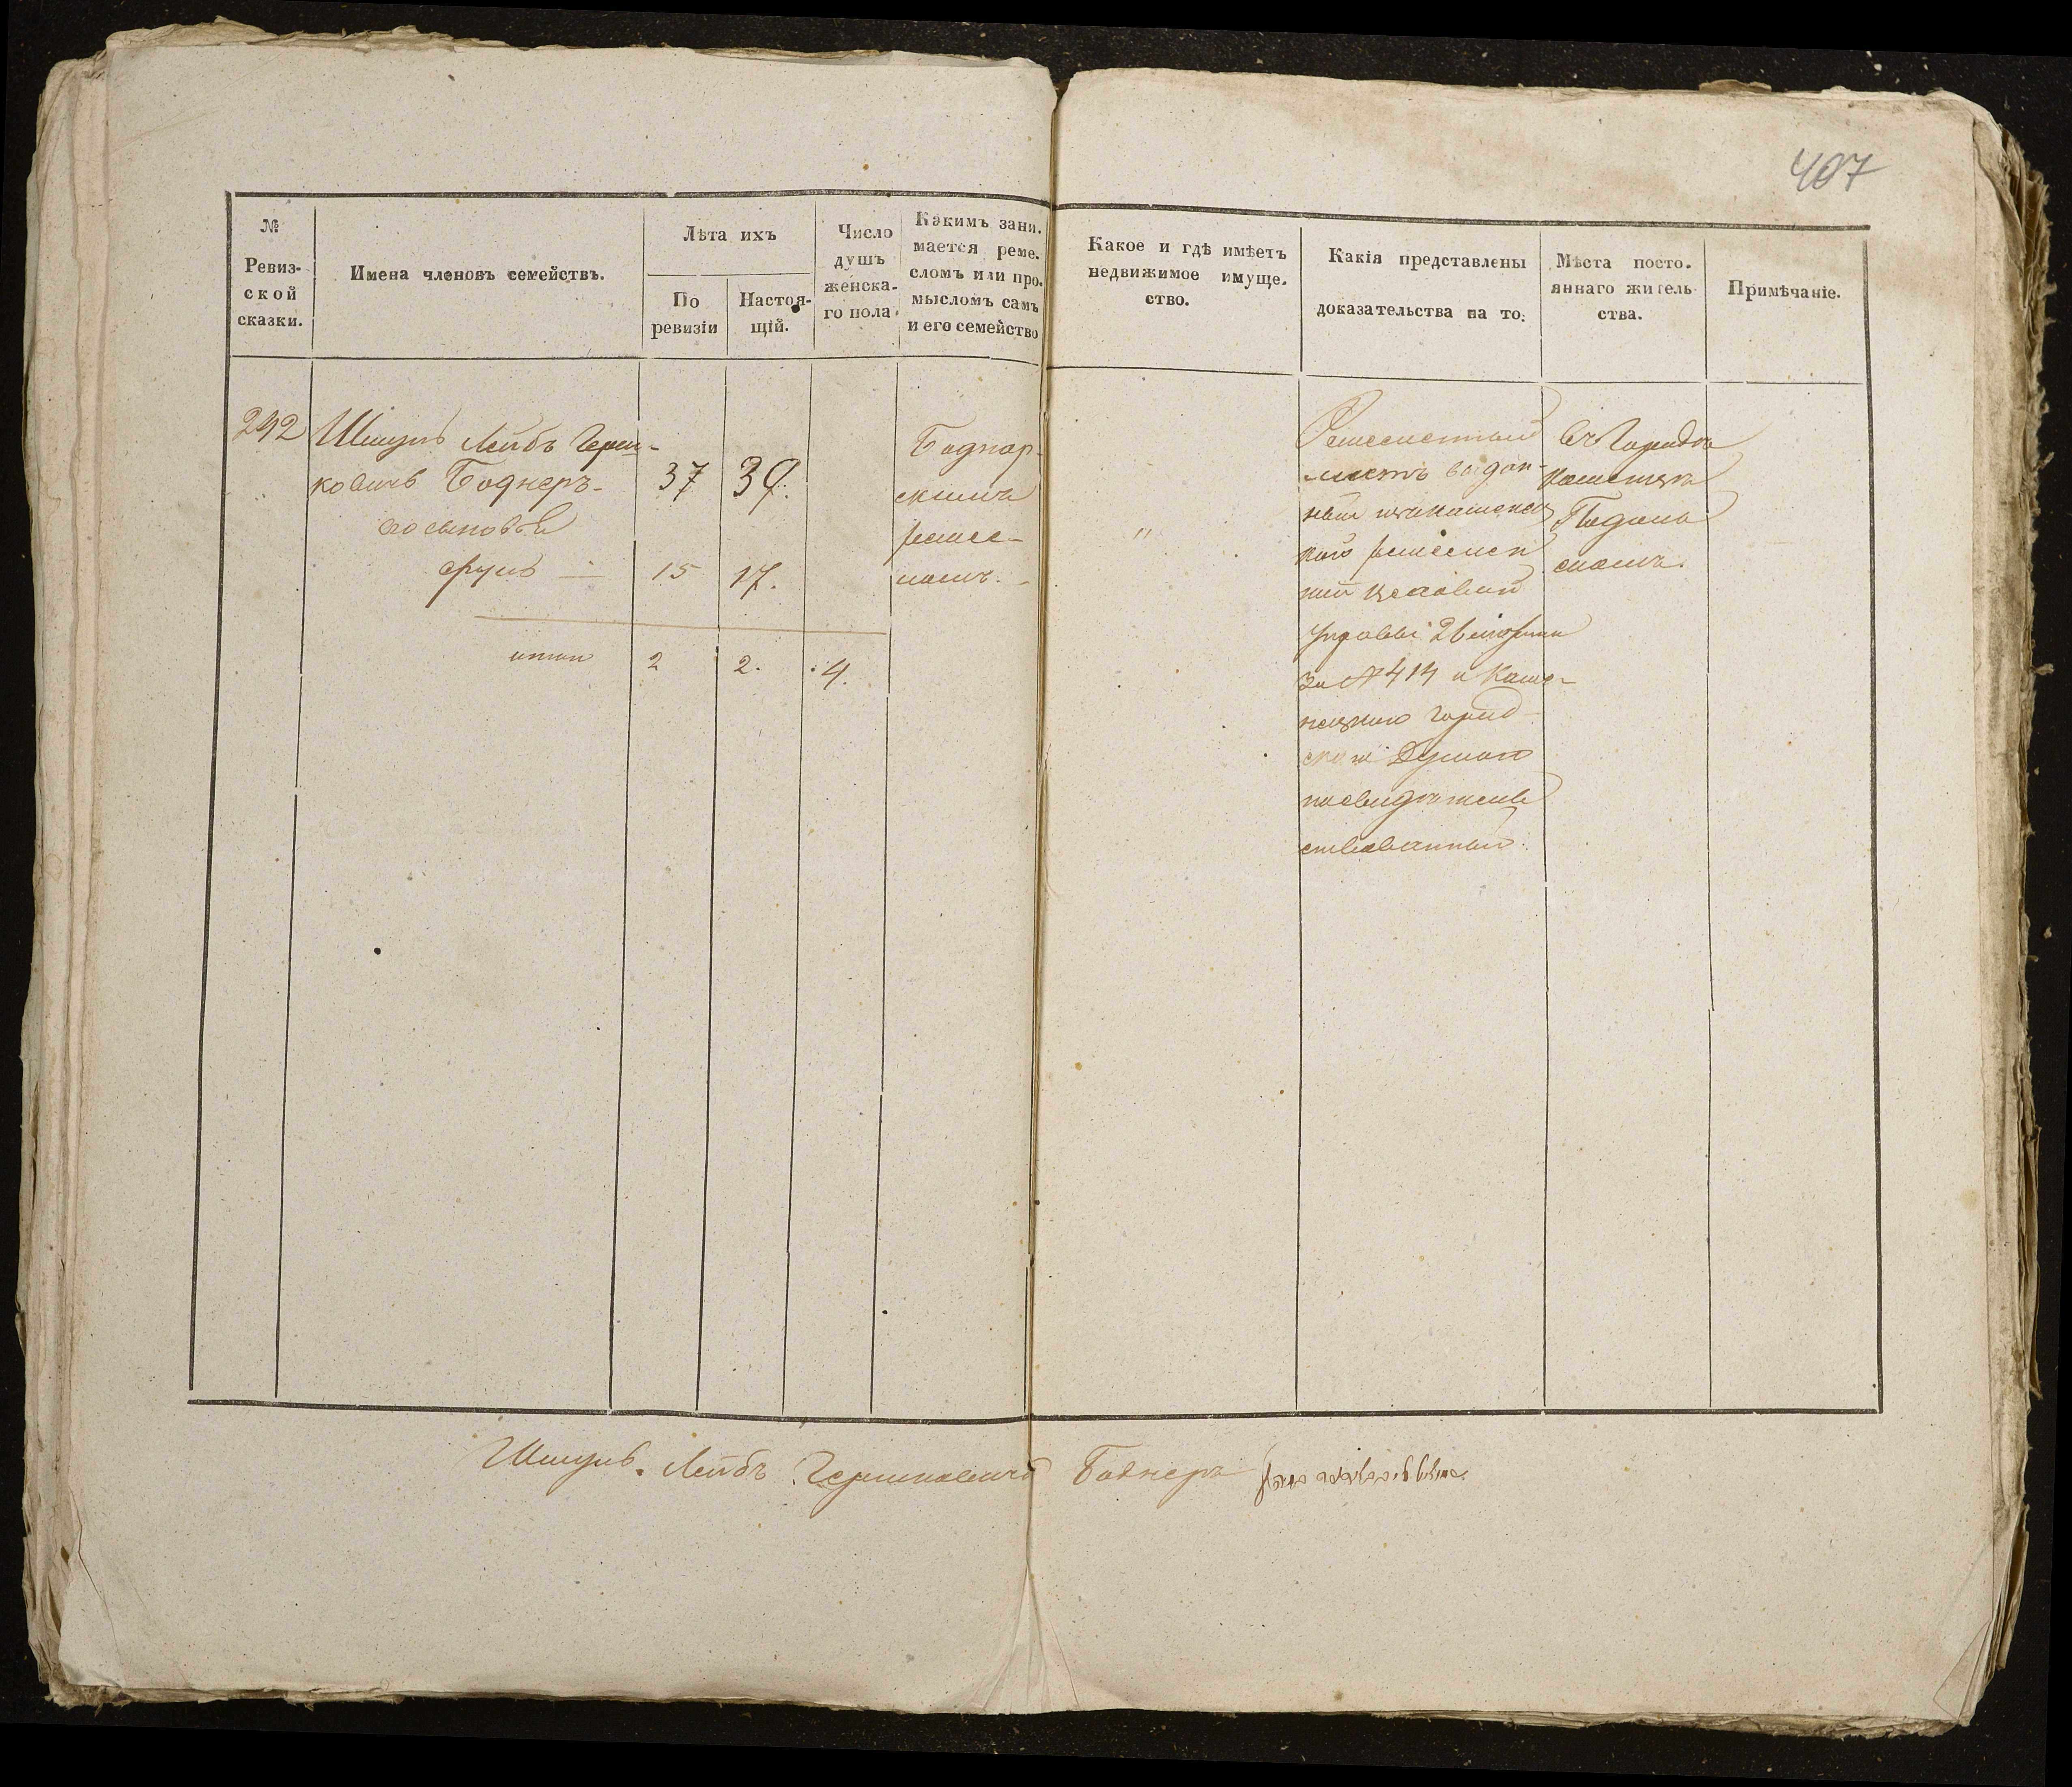 407
№
Ревиз-
ской
сказки.
Имена членовъ семействъ.
Лѣта ихъ
По
ревизіи
Настоя-
щій.
Число
душъ
женска-
го пола.
Какимъ зани.
мается реме.
сломъ или про.
мысломъ самъ
и его семейство
Какое и гдѣ имѣетъ
недвижимое имуще.
ство.
Какія представлены
доказательства на то.
Мѣста посто.
яннаго житель
ства.
Примѣчаніе.
242
Шмуль Лейбъ Герш-
ковичъ Боднеръ-
37 39.
его сыновья
Сруль — 15 17.
итого 2 2. 4.
Боднар-
скимъ
ремес-
ломъ.
"
Ремесленный
листъ выдан-
ный
ремеслен
ной
Управы
за №414 и Каме-
нецкою Город-
ской Думою
посвидѣтель
ствованный.
въ Городѣ
Каменцѣ
Подоль
скомъ.
Шмуль Лейбъ Гершковичъ Боднеръ